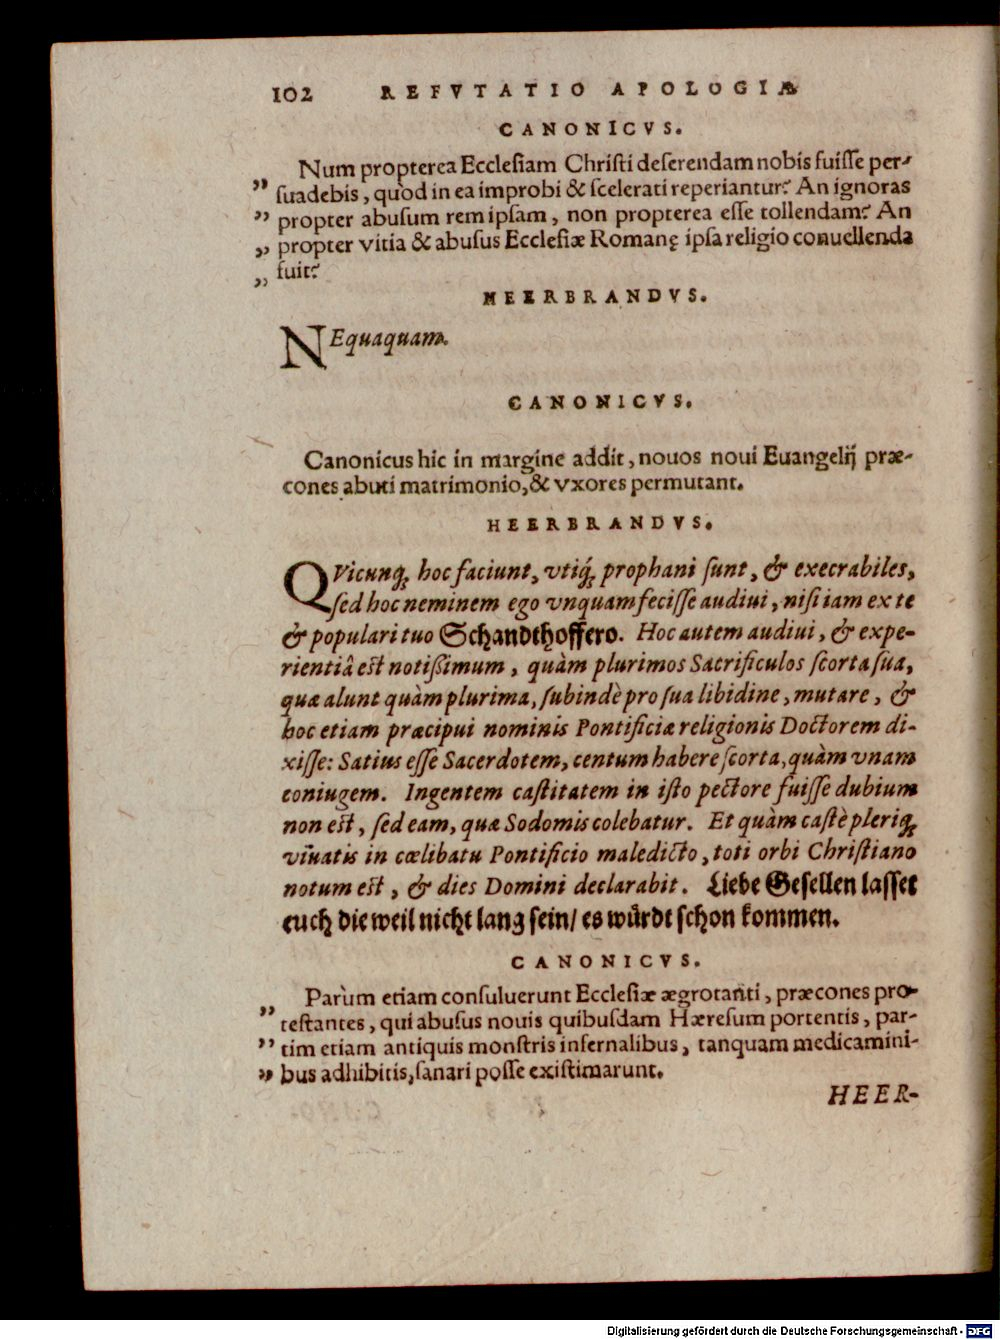 102 REFVTATIO APOLOGIÆ
CANONICVS.
Num propterea Ecclesiam Christi deserendam nobis fuisse per-
„ suadebis, quòd in ea improbi & scelerati reperiantur? An ignoras
„ propter abusum rem ipsam, non propterea esse tollendam? An
„ propter vitia & abusus Ecclesiæ Romanę ipsa religio conuellenda
„ fuit?
HEERBRANDVS.
NEquaquam.
CANONICVS.
Canonicus hic in margine addit, nouos noui Euangelij præ-
cones abuti matrimonio, & vxores permutant.
HEERBRANDVS.
QVicunq; hoc faciunt, vtiq; prophani sunt, & execrabiles,
sed hoc neminem ego vnquam fecisse audiui, nisi iam ex te
& populari tuo Schandthoffero. Hoc autem audiui, & expe-
rientiâ est notißimum, quàm plurimos Sacrificulos scorta sua,
quæ alunt quàm plurima, subindè pro sua libidine, mutare, &
hoc etiam præcipui nominis Pontificiæ religionis Doctorem di-
xisse: Satius esse Sacerdotem, centum habere scorta, quàm vnam
coniugem. Ingentem castitatem in isto pectore fuisse dubium
non est, sed eam, quæ Sodomis colebatur. Et quàm castè pleriq;
viuatis in cœlibatu Pontificio maledicto, toti orbi Christiano
notum est, & dies Domini declarabit. Liebe Gesellen lasset
euch die weil nicht lang sein/ es würdt schon kommen.
CANONICVS.
Parùm etiam consuluerunt Ecclesiæ ægrotanti, præcones pro-
„ testantes, qui abusus nouis quibusdam Hæresum portentis, par-
„ tim etiam antiquis monstris infernalibus, tanquam medicamini-
„ bus adhibitis, sanari posse existimarunt.
HEER-
Digitalisierung gefördert durch die Deutsche Forschungsgemeinschaft - DFG